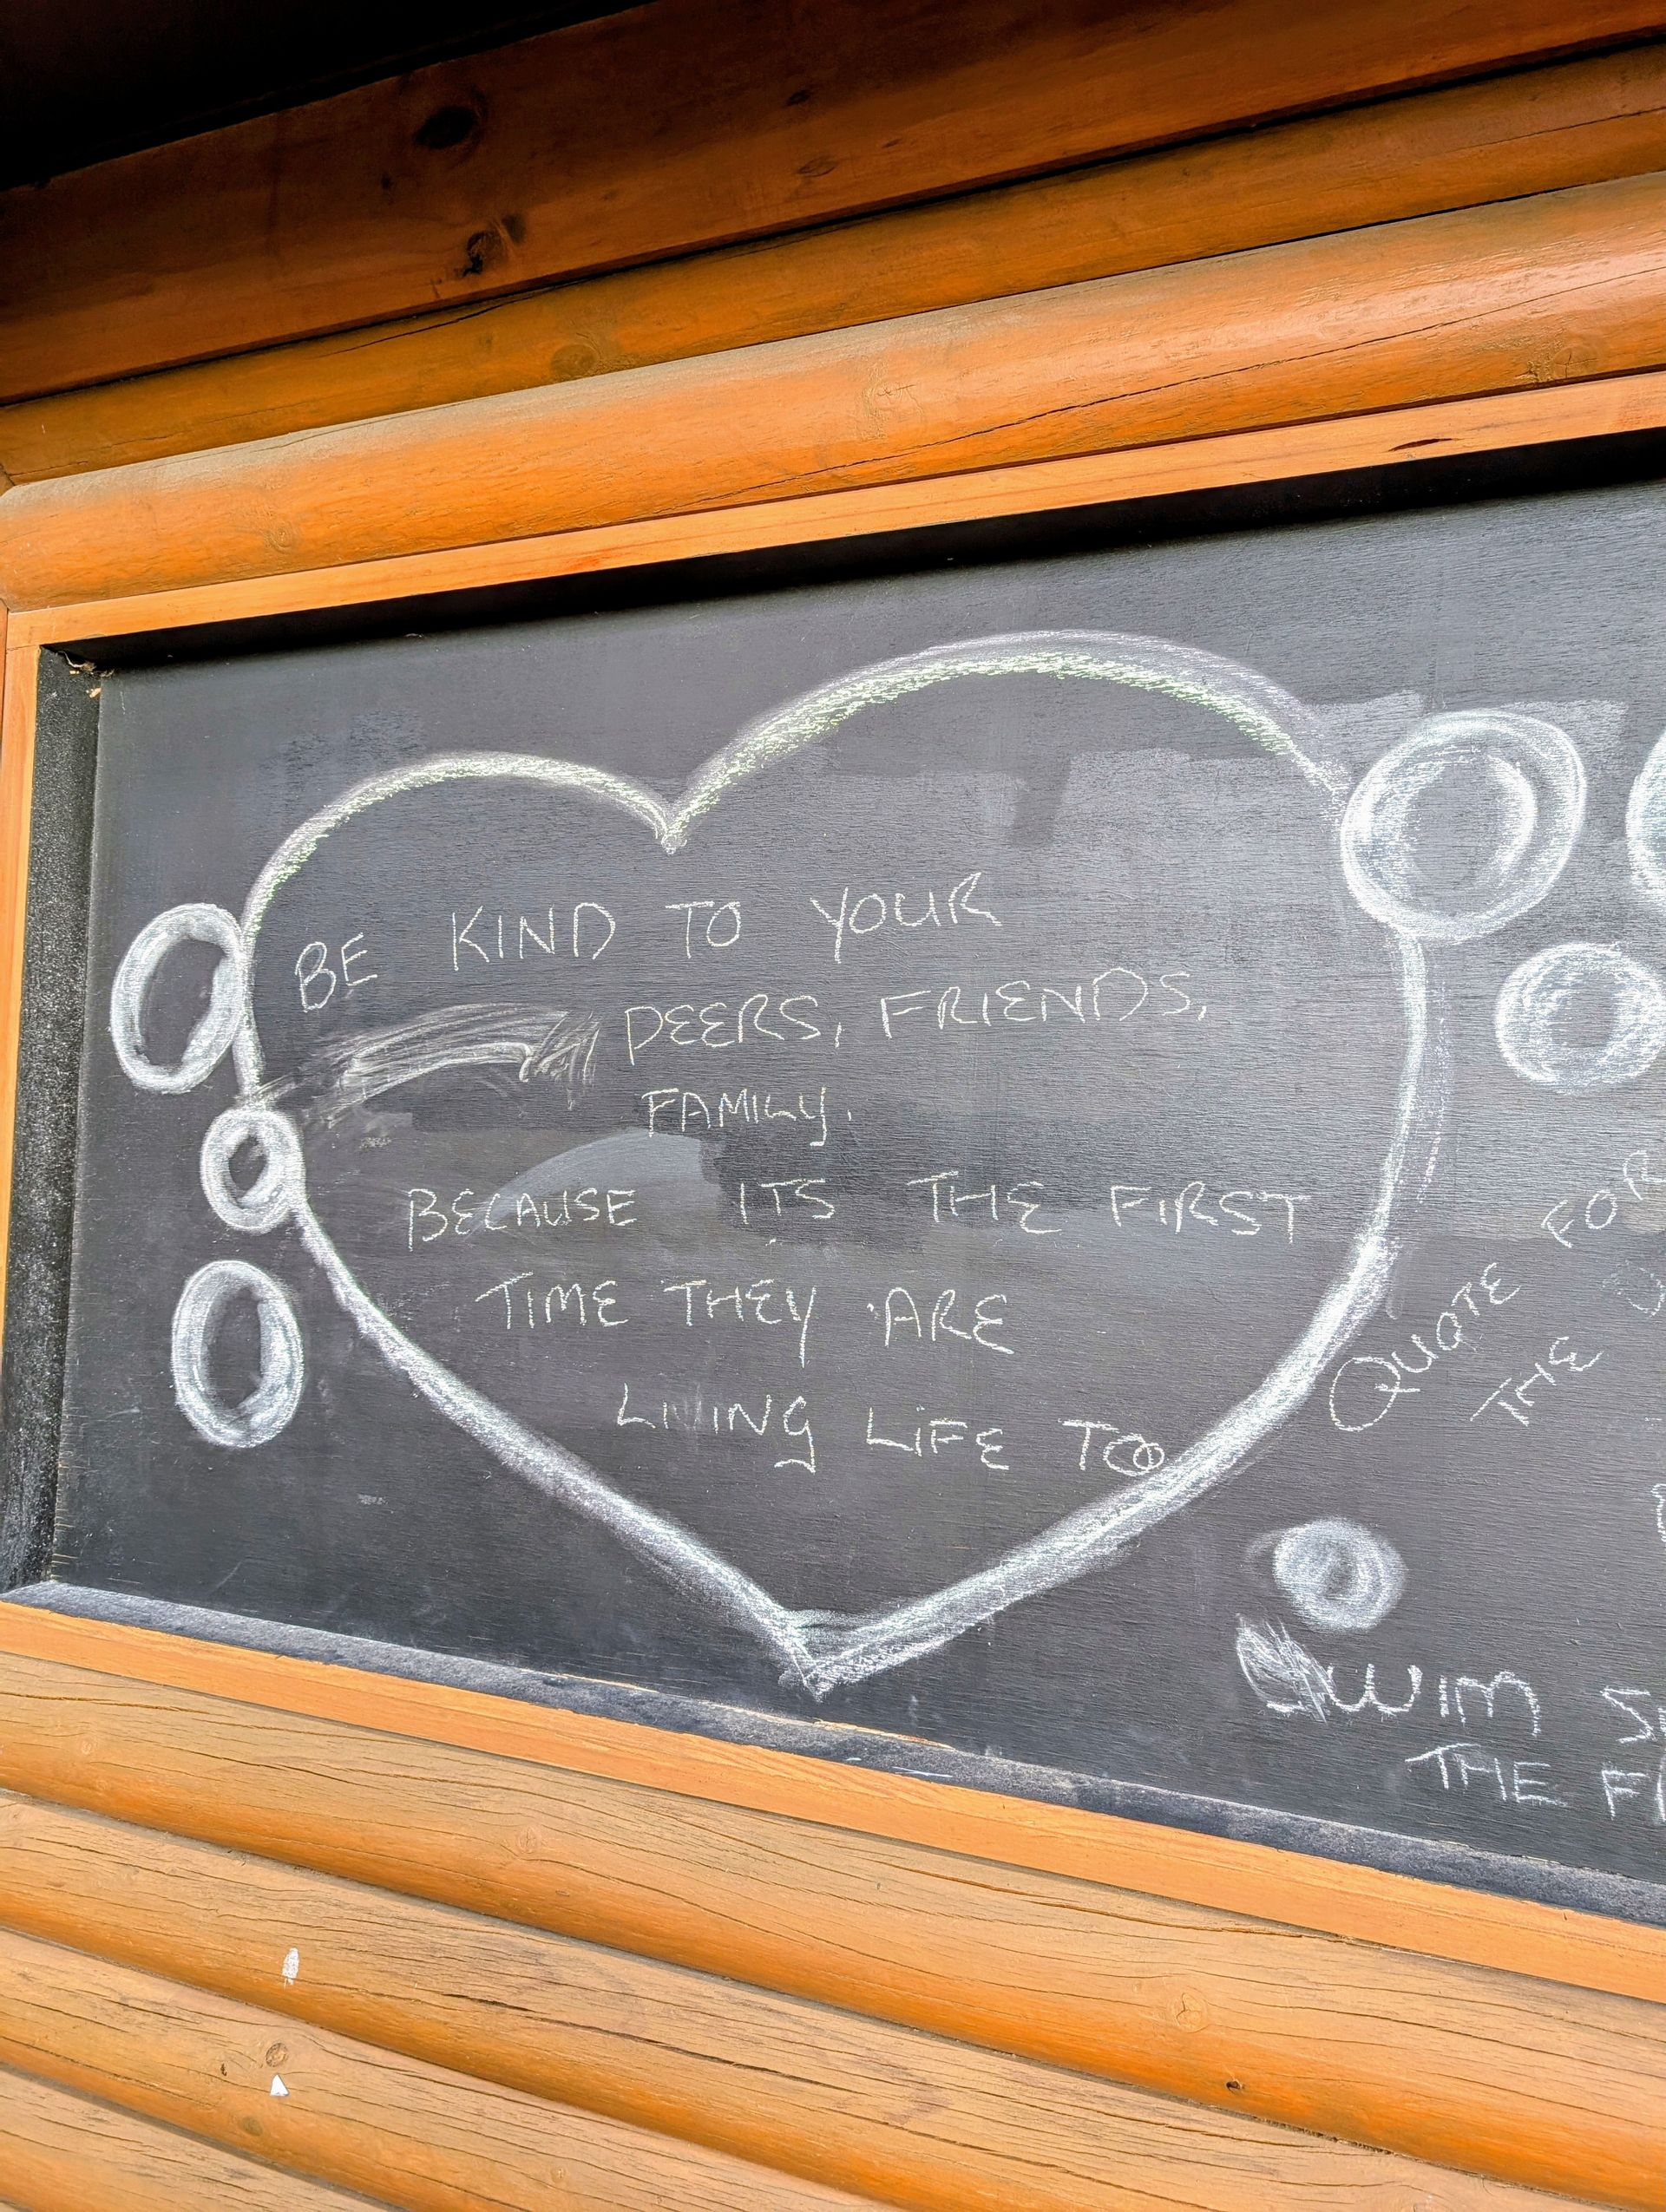 BE KIND TO YOUR
PEERS, FRIENDS,
FAMILY.
BECAUSE ITS THE FIRST
TIME THEY ARE
LIVING LIFE TOO
QUOTE FOR
THE
SWIM
THE